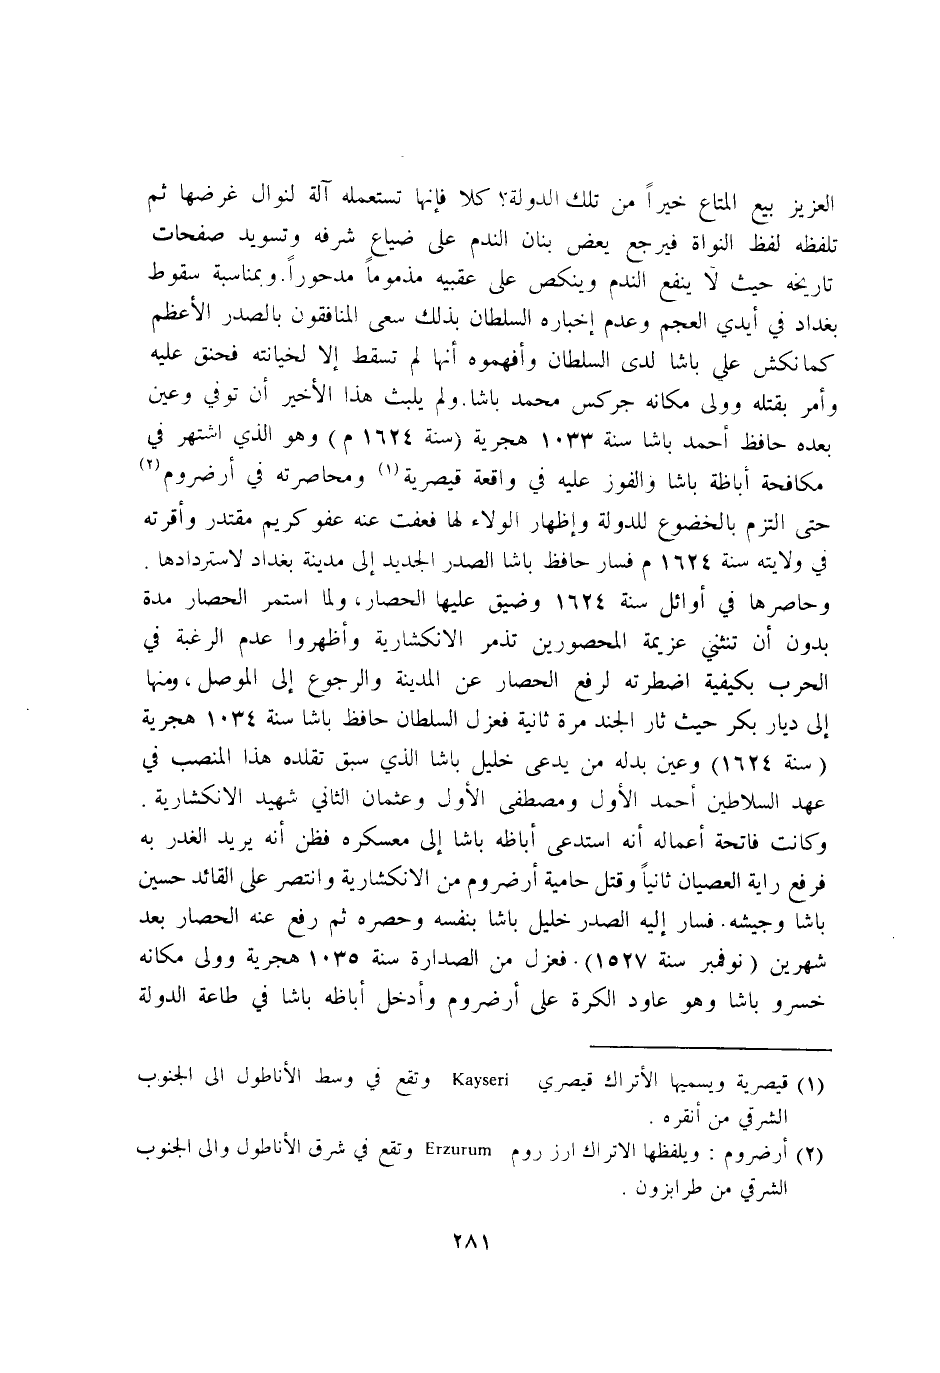 العزيز بيع المتاع خيراً من تلك الدولة؟ كلا فإنها تستعمله آلة لنوال غرضها ثم
تلفظه لفظ النواة فيرجع يعض بنان الندم على ضياع شرفه وتسويد صفحات
تاريخه حيث لا ينفع الندم وينكص على عقبيه مذموماً مدحوراً. وبمناسبة سقوط
بغداد في أيدي العجم وعدم إخباره السلطان بذلك سعى المنافقون بالصدر الأعظم
كمانكش علي باشا لدى السلطان وأفهموه أنها لم تسقط إلا لخيانته فحنق عليه
وأمر بقتله وولى مكانه جركس محمد باشا. ولم يلبث هذا الأخير أن توفي وعين
بعده حافظ أحمد باشا سنة ١٠٣٣ هجرية (سنة ١٦٢٤ م) وهو الذي اشتهر في
مكافحة أباظة باشا والفوز عليه في واقعة قيصرية(١) ومحاصرته في أرضروم(٢)
حتى التزم بالخضوع للدولة وإظهار الولاء لها فعفت عنه عفو كريم مقتدر وأقرته
في ولايته سنة ١٦٢٤ م فسار حافظ باشا الصدر الجديد إلى مدينة بغداد لاستردادها .
وحاصرها في أوائل سنة ١٦٢٤ وضيق عليها الحصار، ولما استمر الحصار مدة
بدون أن تنثني عزيمة المحصورين تذمر الانكشارية وأظهروا عدم الرغبة في
الحرب بكيفية اضطرته لرفع الحصار عن المدينة والرجوع إلى الموصل، ومنها
إلى ديار بكر حيث ثار الجند مرة ثانية فعزل السلطان حافظ باشا سنة ١٠٣٤ هجرية
(سنة ١٦٢٤) وعين بدله من يدعى خليل باشا الذي سبق تقلده هذا المنصب في
عهد السلاطين أحمد الأول ومصطفى الأول وعثمان الثاني شهيد الانكشارية .
وكانت فاتحة أعماله أنه استدعى أباظه باشا إلى معسكره فظن أنه يريد الغدر به
فرفع راية العصيان ثانياً وقتل حامية أرضروم من الانكشارية وانتصر على القائد حسين
باشا وجيشه. فسار إليه الصدر خليل باشا بنفسه وحصره ثم رفع عنه الحصار بعد
شهرين (نوفمبر سنة ١٥٢٧). فعزل من الصدارة سنة ١٠٣٥ هجرية وولى مكانه
خسرو باشا وهو عاود الكرة على أرضروم وأدخل أباظه باشا في طاعة الدولة
(١) قيصرية ويسميها الأتراك قيصري Kayseri وتقع في وسط الأناطول الى الجنوب
الشرقي من أنقره .
(٢) أرضروم : ويلفظها الاتراك ارز روم Erzurum وتقع في شرق الأناطول والى الجنوب
الشرقي من طرابزون .
٢٨١